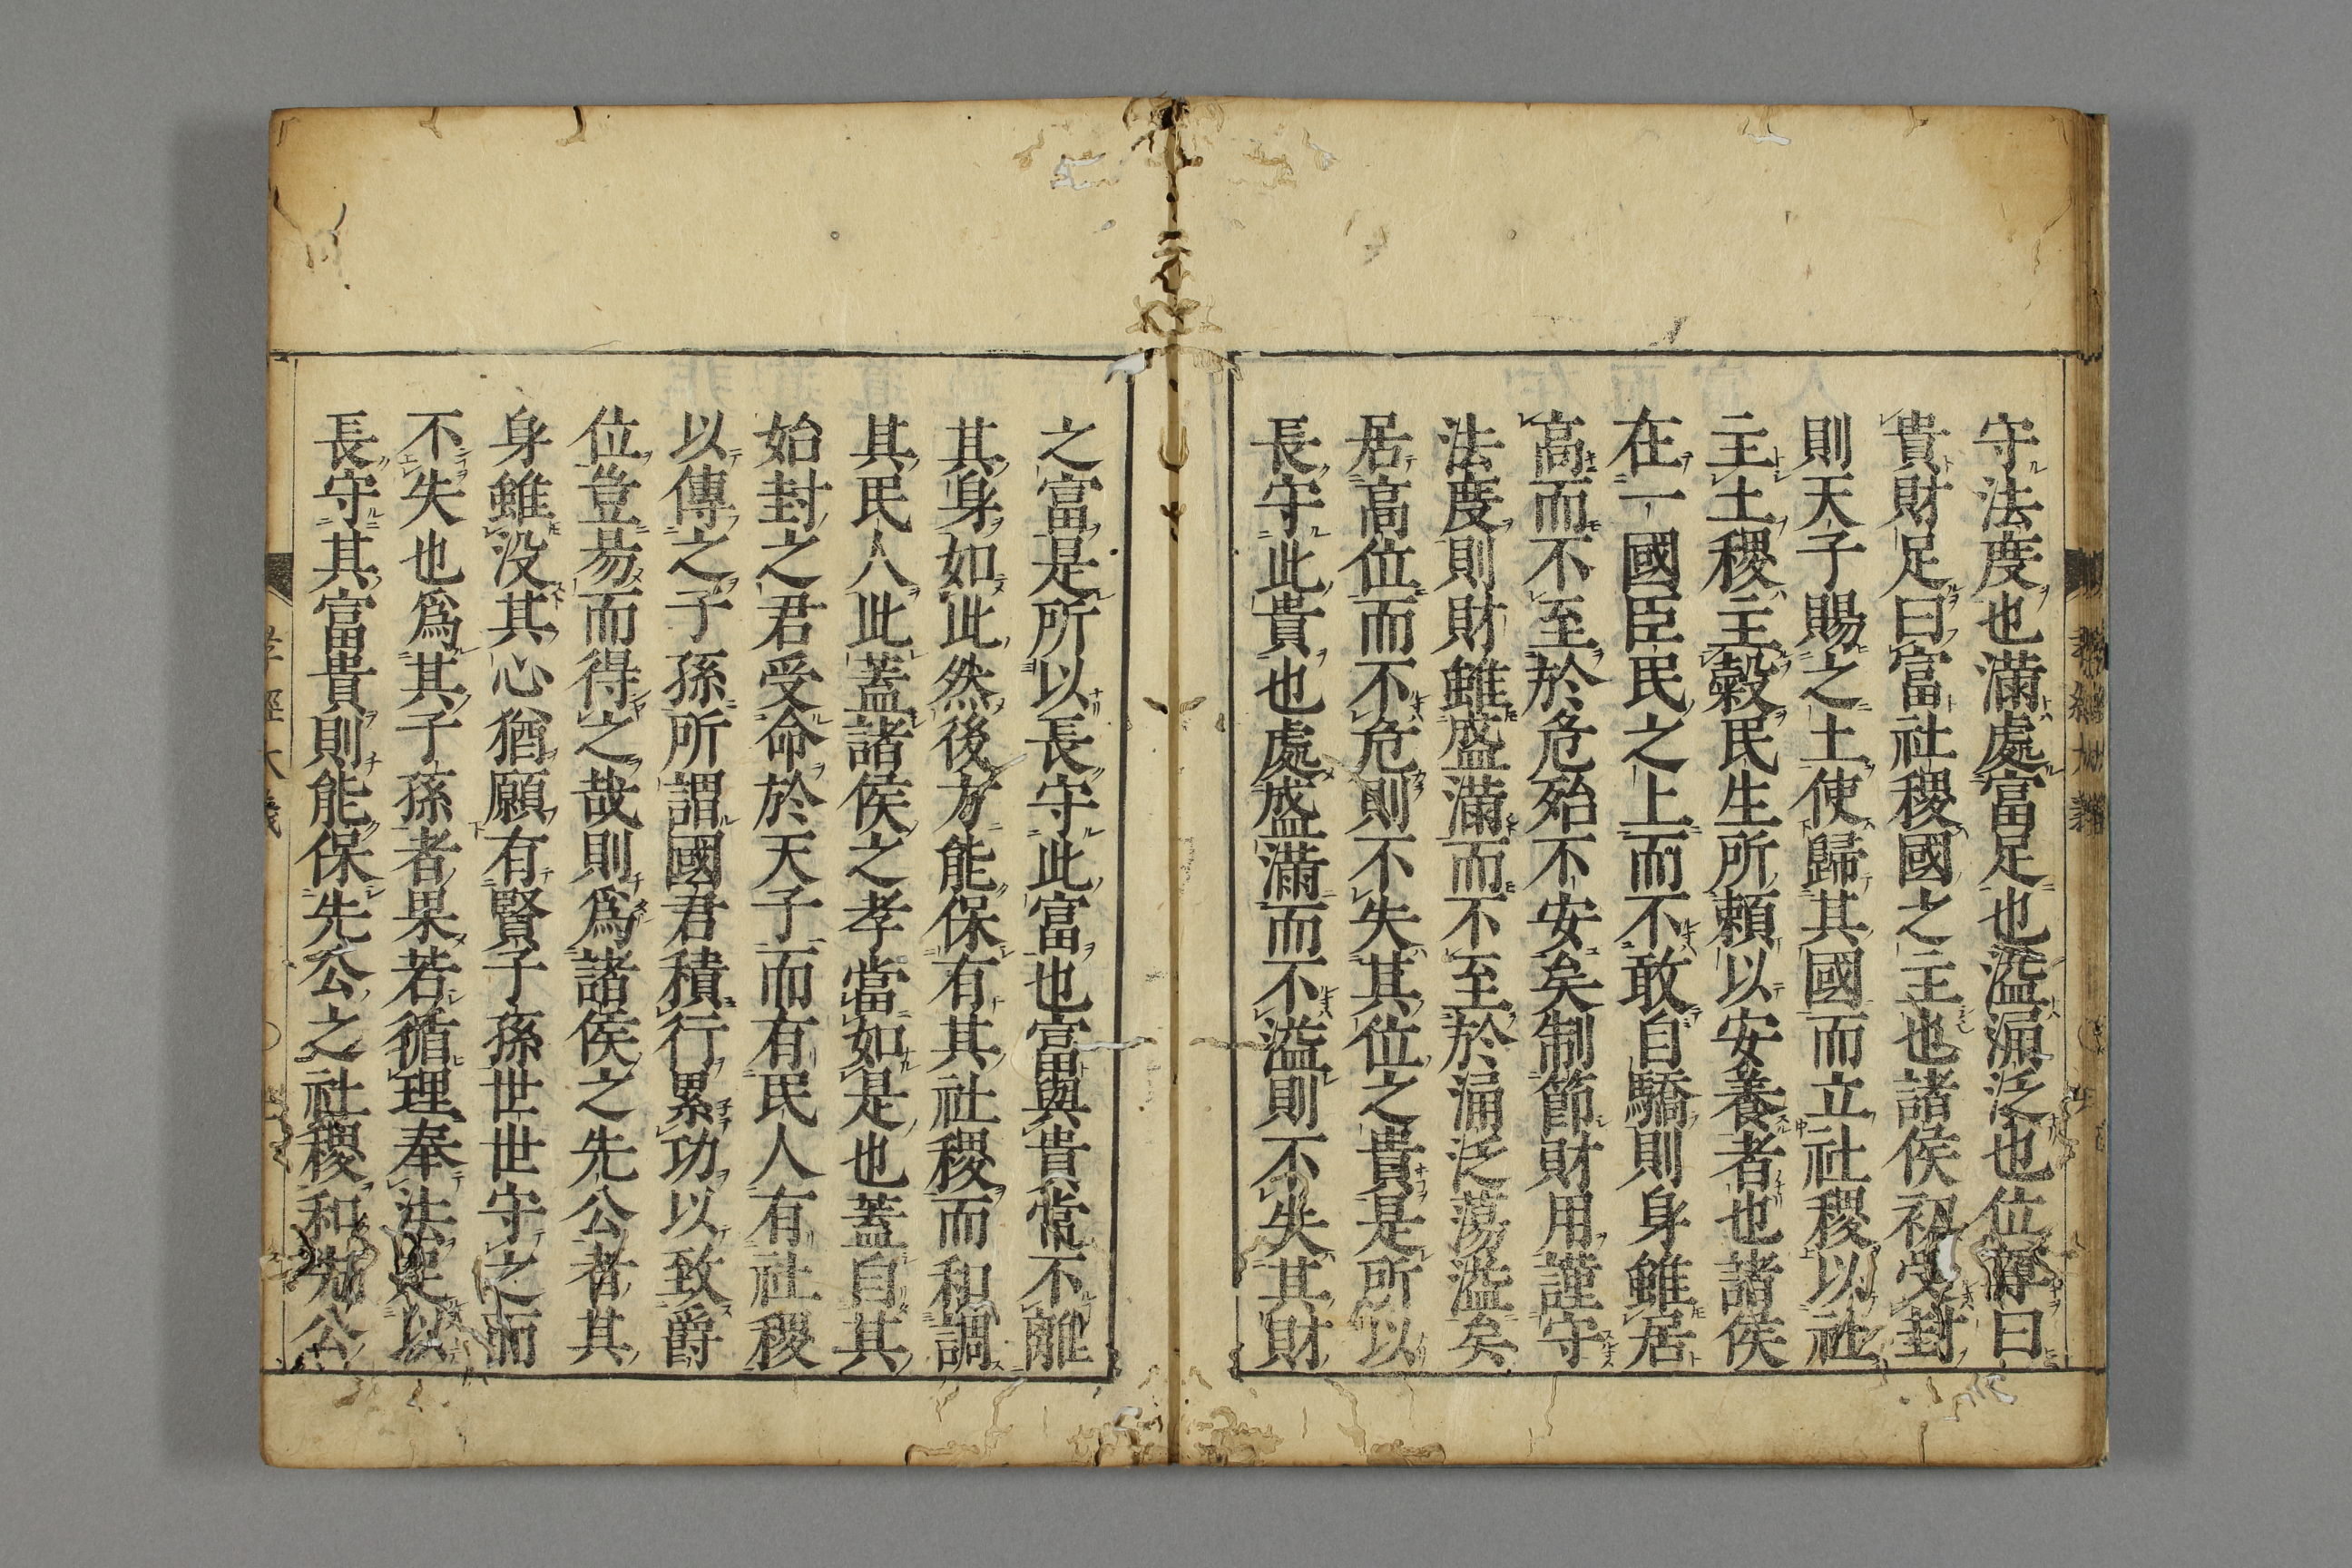 守法度也滿處富足也溢漏泛也位尊曰
貴財足曰富社稷國之主也諸侯初受封
則天子賜之土使歸其國而立社稷以社
主土稷主穀民生所頼以安養者也諸侯
在一國臣民之上而不敢自驕則身雖居
高而不至於危殆不安矣制節財用謹守
法度則財雖盛滿而不至於漏泛蕩溢矣
居高位而不危則不失其位之貴是所以
長守此貴也處盛滿而不溢則不失其財
之富是所以長守此富也富與貴常不離
其身如此然後方能保有其社稷而和調
其民人此蓋諸侯之孝當如是也蓋自其
始封之君受命於天子而有民人有社稷
以傳之子孫所謂國君積行累功以致爵
位豈易而得之哉則爲諸侯之先公者其
身雖没其心猶願有賢子孫世世守之而
不失也爲其子孫者果若循理奉法足以
長守其富貴則能保先公之社稷和先公
孝經大義